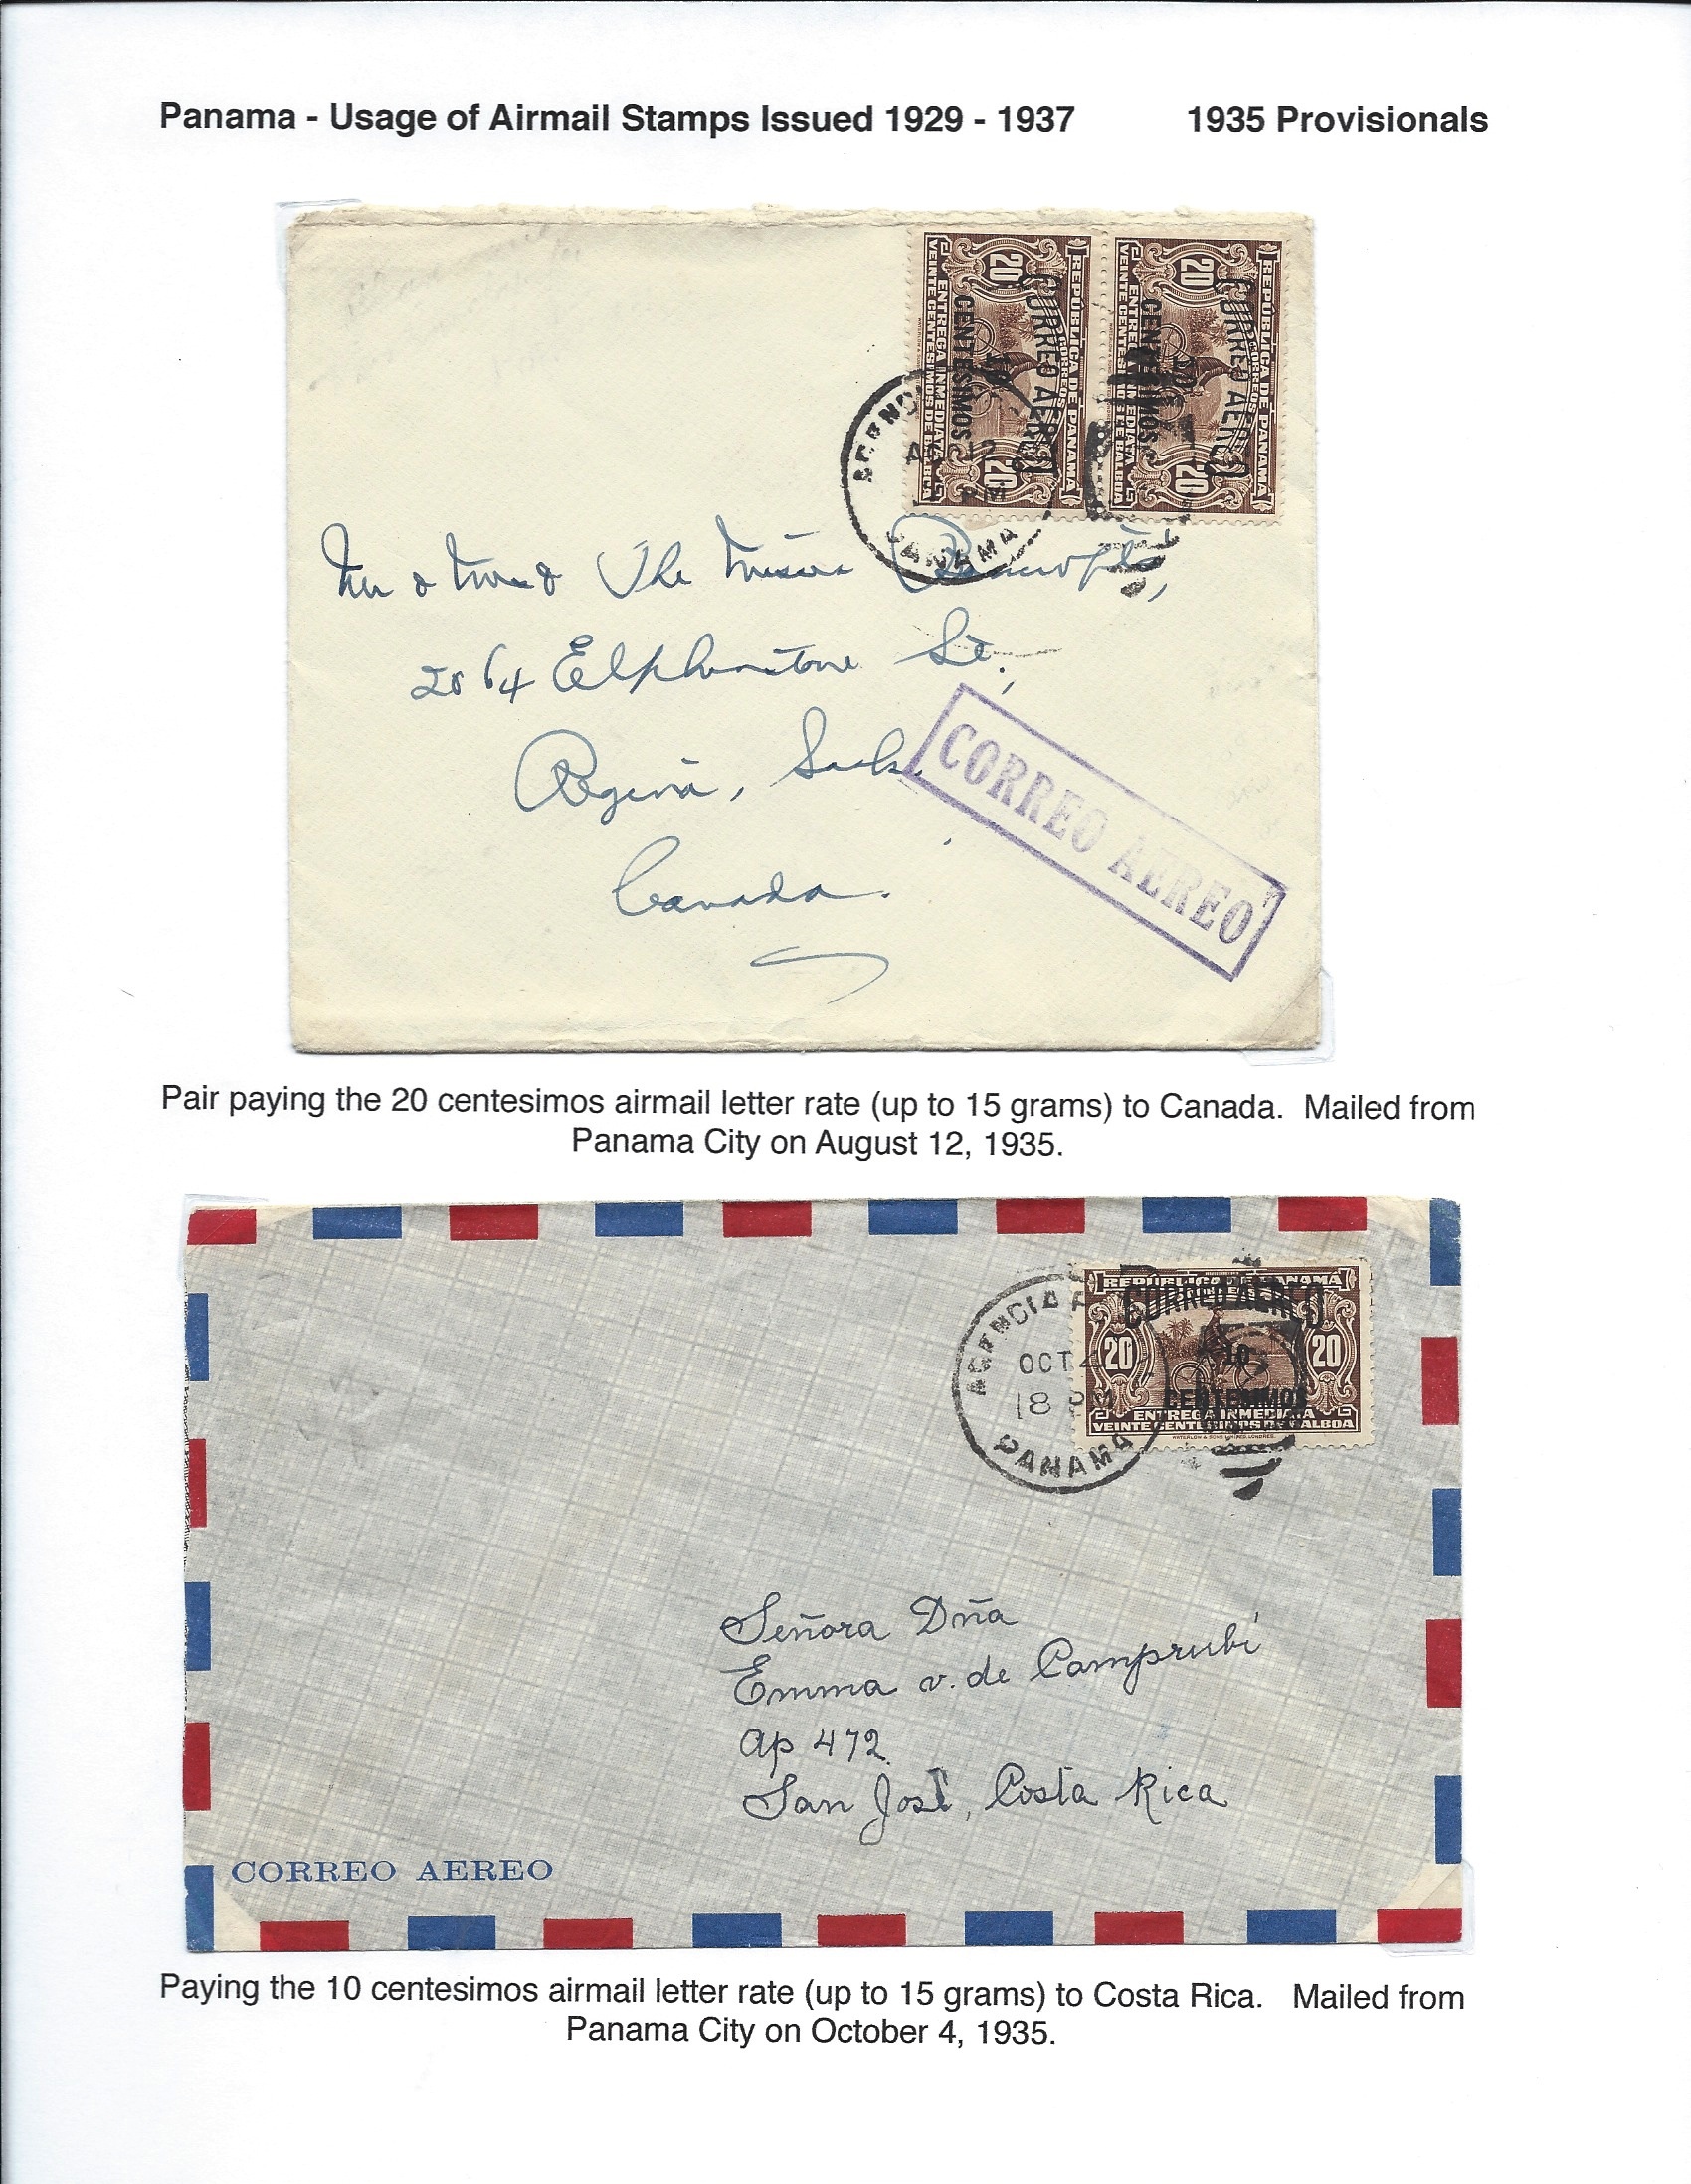 Panama - Usage of Airmail Stamps Issued 1929 - 1937 1935 Provisionals
REPÚBLICA DE PANAMÁ
CORREOS
CORREO AEREO
20 10 20
CENTESIMOS
ENTREGA INMEDIATA
VEINTE CENTESIMOS DE BALBOA
REPÚBLICA DE PANAMÁ
CORREOS
CORREO AEREO
20 10 20
CENTESIMOS
ENTREGA INMEDIATA
VEINTE CENTESIMOS DE BALBOA
AGENCIA
AG 12
PM
PANAMA
The Misses Bancrofts,
2064 Elphinstone St.,
Regina, Sask.
Canada.
CORREO AEREO
Pair paying the 20 centesimos airmail letter rate (up to 15 grams) to Canada. Mailed from
Panama City on August 12, 1935.
AGENCIA
OCT 4
18 PM
PANAMA
REPÚBLICA DE PANAMÁ
CORREO AEREO
20 10 20
CENTESIMOS
ENTREGA INMEDIATA
VEINTE CENTESIMOS DE BALBOA
WATERLOW & SONS LIMITED, LONDRES.
Señora Dña
Emma v. de Camprubí
Ap 472
San José, Costa Rica
CORREO AEREO
Paying the 10 centesimos airmail letter rate (up to 15 grams) to Costa Rica. Mailed from
Panama City on October 4, 1935.